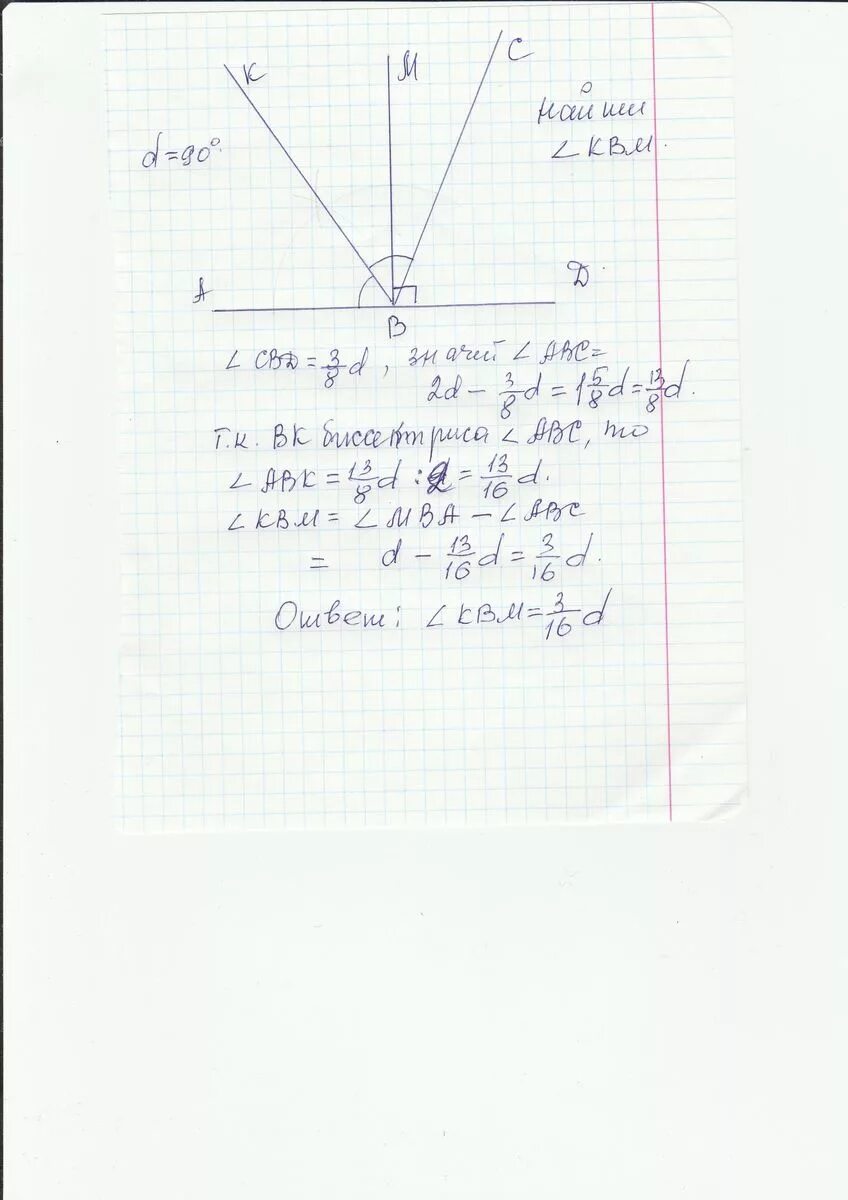 К
М
С
d=90°
Найти
∠KBM.
А
Д
В
∠CBД = 3/8 d, значит ∠ABC=
2d - 3/8 d = 1 5/8 d = 13/8 d.
т.к. ВК биссектриса ∠ABC, то
∠ABK = 13/8 d : 2 = 13/16 d.
∠KBM = ∠MBA - ∠ABC
= d - 13/16 d = 3/16 d.
Ответ: ∠KBM = 3/16 d